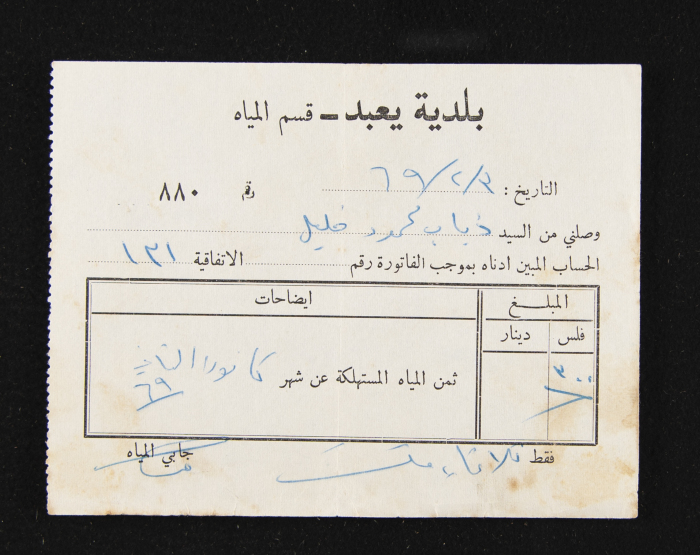 بلدية يعبد ـ قسم المياه
التاريخ : ٦٩/٢/٣ رقم ٨٨٠
وصلني من السيد ذياب محمود خليل
الحساب المبين ادناه بموجب الفاتورة رقم الاتفاقية ١٣١
المبلغ ايضاحات
فلس دينار
٣٠٠ ثمن المياه المستهلكة عن شهر كانون الثاني
٦٩
فقط ثلاثماية فلس جابي المياه